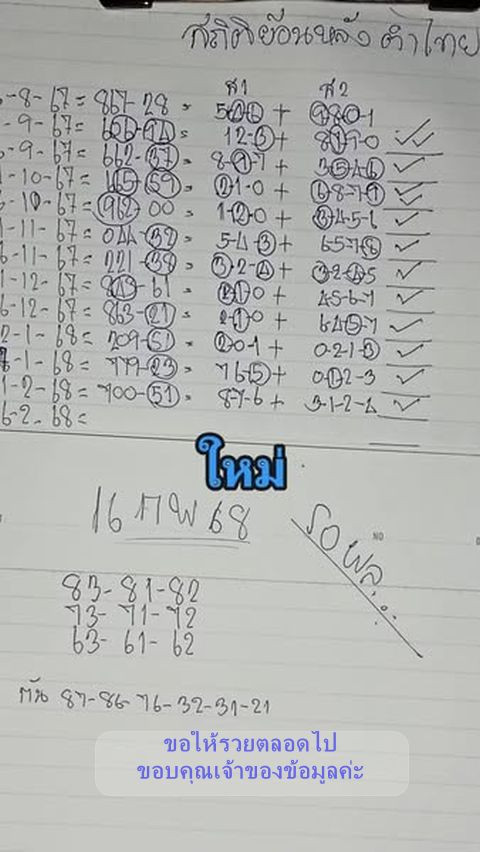 สถิติย้อนหลัง คำไทย
ส1 ส2
-8-67= 867-28 = 5 + 0-1
-9-67= 12-3+ 8 7-0
-9-67= 662-37 = 8-9-7
-10-67= 665-59 = 2-1-0 + 6-8-7-9
-10-67= 962-00 = 1-2-0 + 3-4-5-6
-11-67= 044-32 = 5-4-3+ 6-5-7-8
-11-67= 221-38 = 3-2-4+ 3-2-4-5
-12-67= -61 = 0 + 4-5-6-7
6-12-67= 863-21 = 2-1-0+ 6-4-5-7
2-1-68= 209-51 = 2-0-1 + 0-2-1-3
-1-68= 779-23 = 7-6-5+ 0-1-2-3
1-2-68= 700-51 = 8-7-6 + 3-1-2-4
6-2-68=
ใหม่
16 กพ 68
รอ ผล...
NO
83-81-82
73-71-72
63-61-62
กัน 87-86-76-32-31-21
ขอให้รวยตลอดไป
ขอบคุณเจ้าของข้อมูลค่ะ